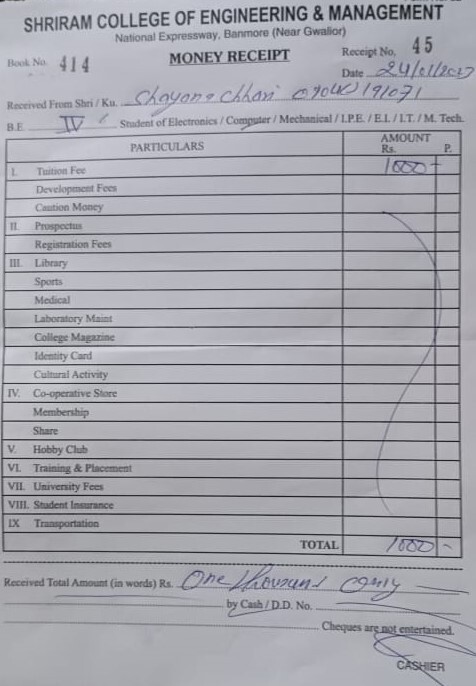 SHRIRAM COLLEGE OF ENGINEERING & MANAGEMENT
National Expressway, Banmore (Near Gwalior)
Book No. 414 MONEY RECEIPT Receipt No. 45
Date 24/01/2023
Received From Shri / Ku. Chhari
B.E. IV Student of Electronics / Computer / Mechanical / I.P.E. / E.I. / I.T. / M. Tech.
PARTICULARS AMOUNT
Rs. P.
I. Tuition Fee 1000 -
Development Fees
Caution Money
II. Prospectus
Registration Fees
III. Library
Sports
Medical
Laboratory Maint
College Magazine
Identity Card
Cultural Activity
IV. Co-operative Store
Membership
Share
V. Hobby Club
VI. Training & Placement
VII. University Fees
VIII. Student Insurance
IX Transportation
TOTAL 1000 -
Received Total Amount (in words) Rs. One thousand only
by Cash / D.D. No.
Cheques are not entertained.
CASHIER